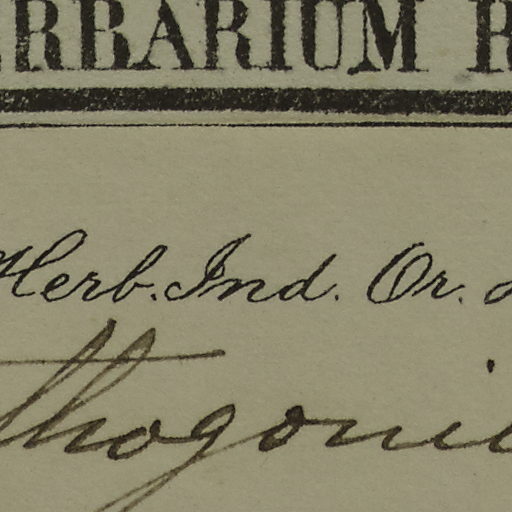 ERBARIUM R
Herb. Ind. Or.
thogoni